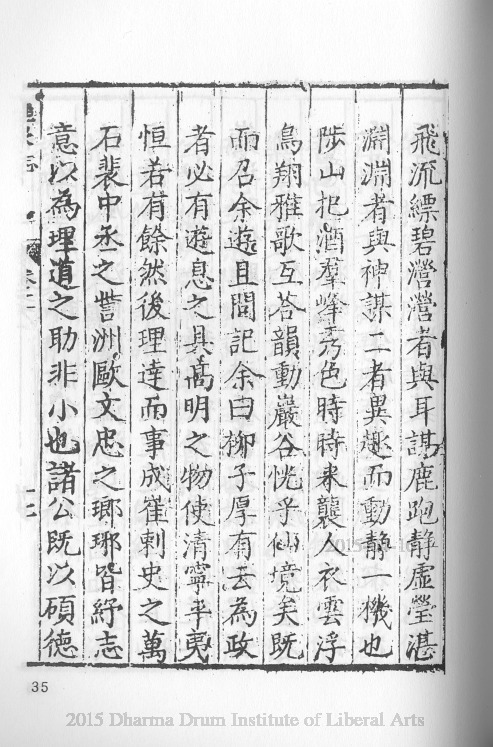 飛流縹碧瀯瀯者與耳謀鹿跑静虛瑩湛
淵淵者與神謀二者異趣而動静一機也
陟山把酒羣峰秀色時時来襲人衣雲浮
鳥翔雅歌互荅韻動巖谷恍乎仙境矣既
而召余遊且問記余曰柳子厚有云為政
者必有遊息之具髙明之物使清寧平夷
恒若有餘然後理達而事成崔刺史之萬
石裴中丞之訾洲歐文忠之瑯琊皆紓志
意以為理道之助非小也諸公既以碩德
35
2015 Dharma Drum Institute of Liberal Arts